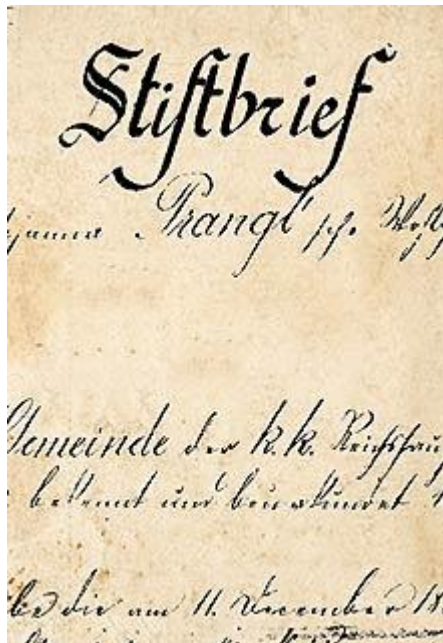 Stiftbrief
Prangl' sche
Gemeinde der k. k. Reichshau
bekennt und beurkundet
die am 11. December 18